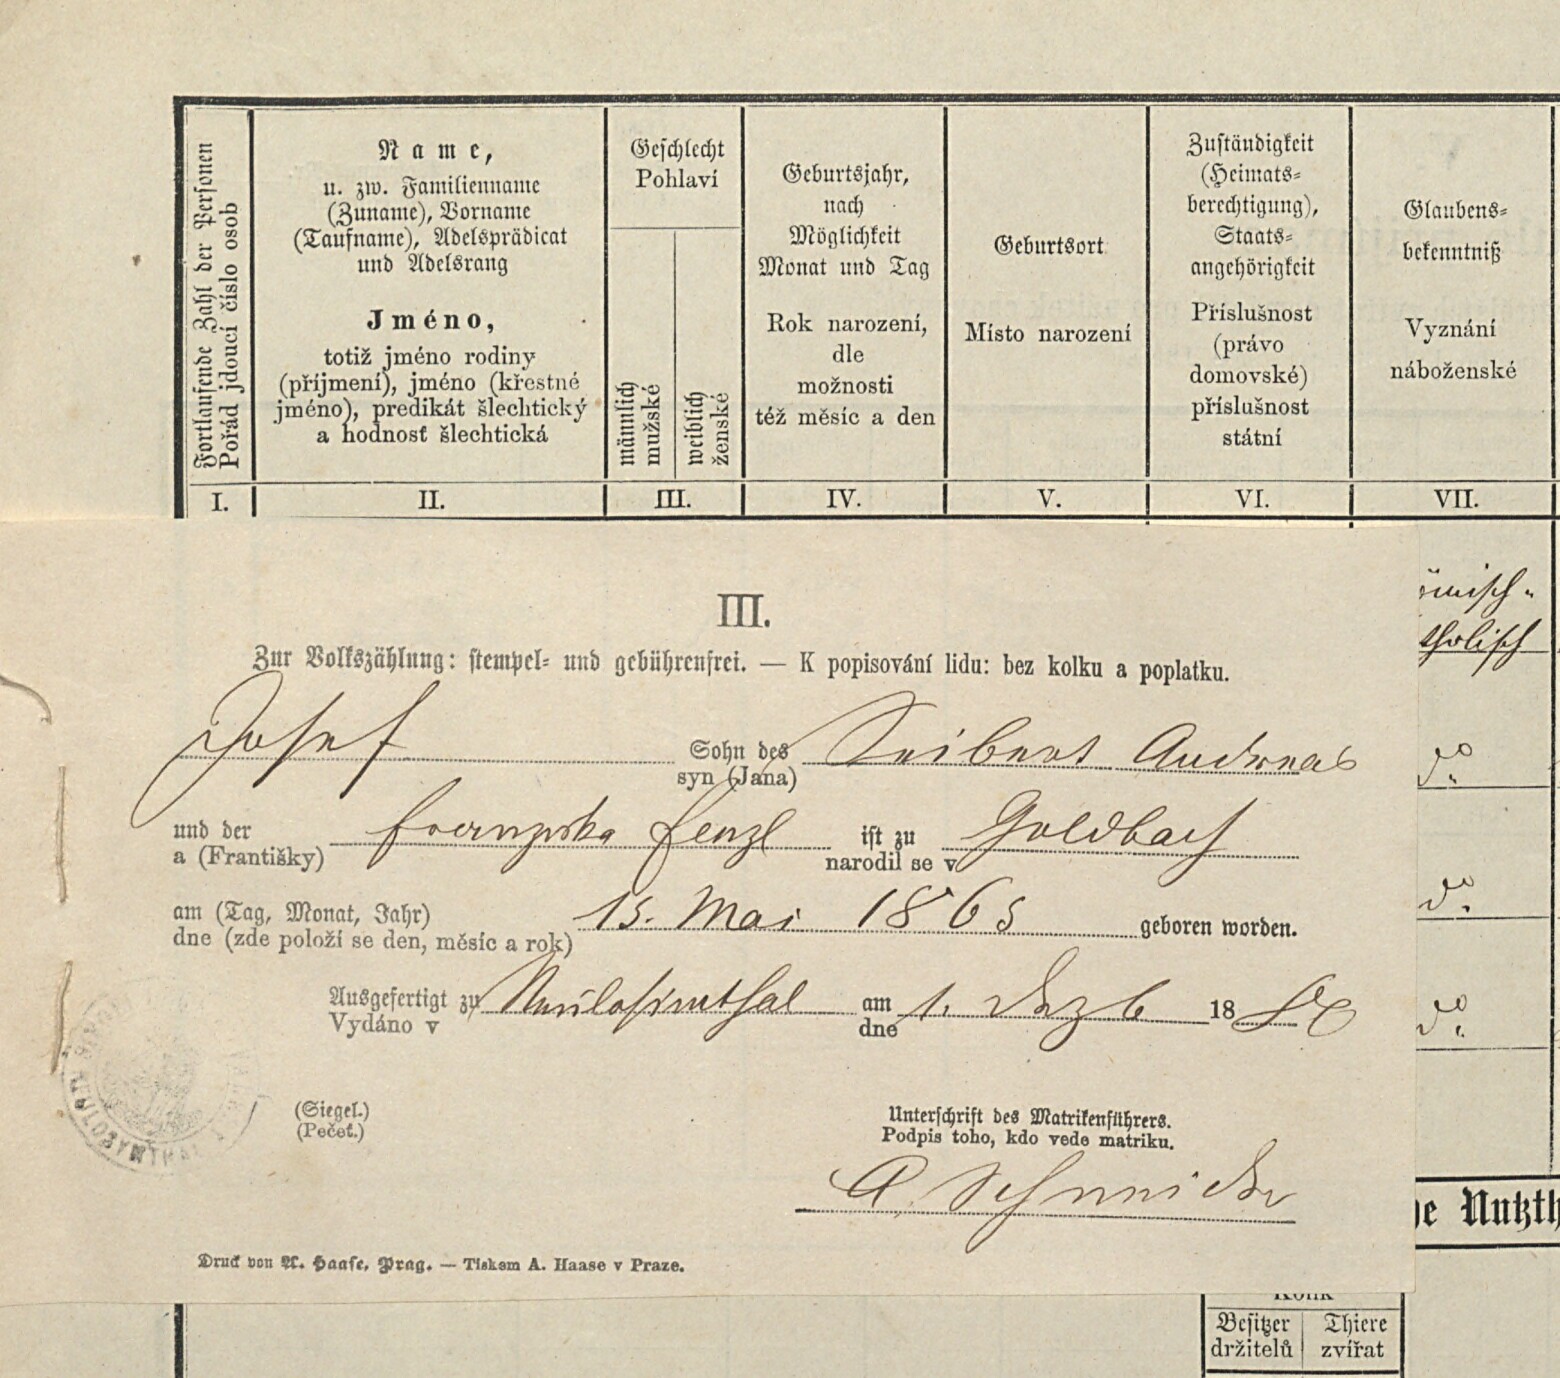 Fortlaufende Zahl der Personen
Pořád jdoucí číslo osob
Name,
u. zw. Familienname
(Zuname), Vorname
(Taufname), Adelsprädicat
und Adelsrang
Jméno,
totiž jméno rodiny
(příjmení), jméno (křestné
jméno), predikát šlechtický
a hodnosť šlechtická
Geschlecht
Pohlaví
männlich
mužské
weiblich
ženské
Geburtsjahr,
nach
Möglichkeit
Monat und Tag
Rok narození,
dle
možnosti
též měsíc a den
Geburtsort
Místo narození
Zuständigkeit
(Heimats=
berechtigung),
Staats=
angehörigkeit
Příslušnost
(právo
domovské)
příslušnost
státní
Glaubens=
bekenntniß
Vyznání
náboženské
I. II. III. IV. V. VI. VII.
III.
Zur Volkszählung: stempel= und gebührenfrei. — K popisování lidu: bez kolku a poplatku.
Josef Sohn des Seibert Andreas
syn (Jana)
und der Franziska Fenzl ist zu Goldbach
a (Františky) narodil se v
am (Tag, Monat, Jahr) 15. Mai 1865 geboren worden.
dne (zde položí se den, měsíc a rok)
Ausgefertigt zu Neulosimthal am 1. Dezb 18
Vydáno v dne
(Siegel.)
(Pečeť.)
Unterschrift des Matrikenführers.
Podpis toho, kdo vede matriku.
Druck von A. Haase, Prag. — Tiskem A. Haase v Praze.
ömisch-
tholisch
do.
do.
do.
ge Nutzth
Besitzer Thiere
držitelů zvířat